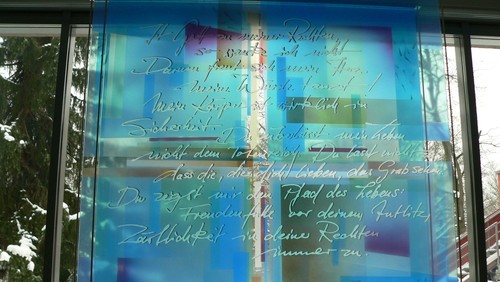 zu meiner Rechten,
so wanke ich nicht
Darum freut sich mein Herz,
meine Würde jauchzt!
Mein Körper ist wirklich in
Sicherheit. mein Leben
nicht dem Totenreich. Du lässt nicht zu,
dass die, die dich lieben, das Grab sehn.
Du zeigst mir den Pfad des Lebens:
Freudenfülle vor deinem Antlitz,
Zärtlichkeit in deiner Rechten
immerzu.